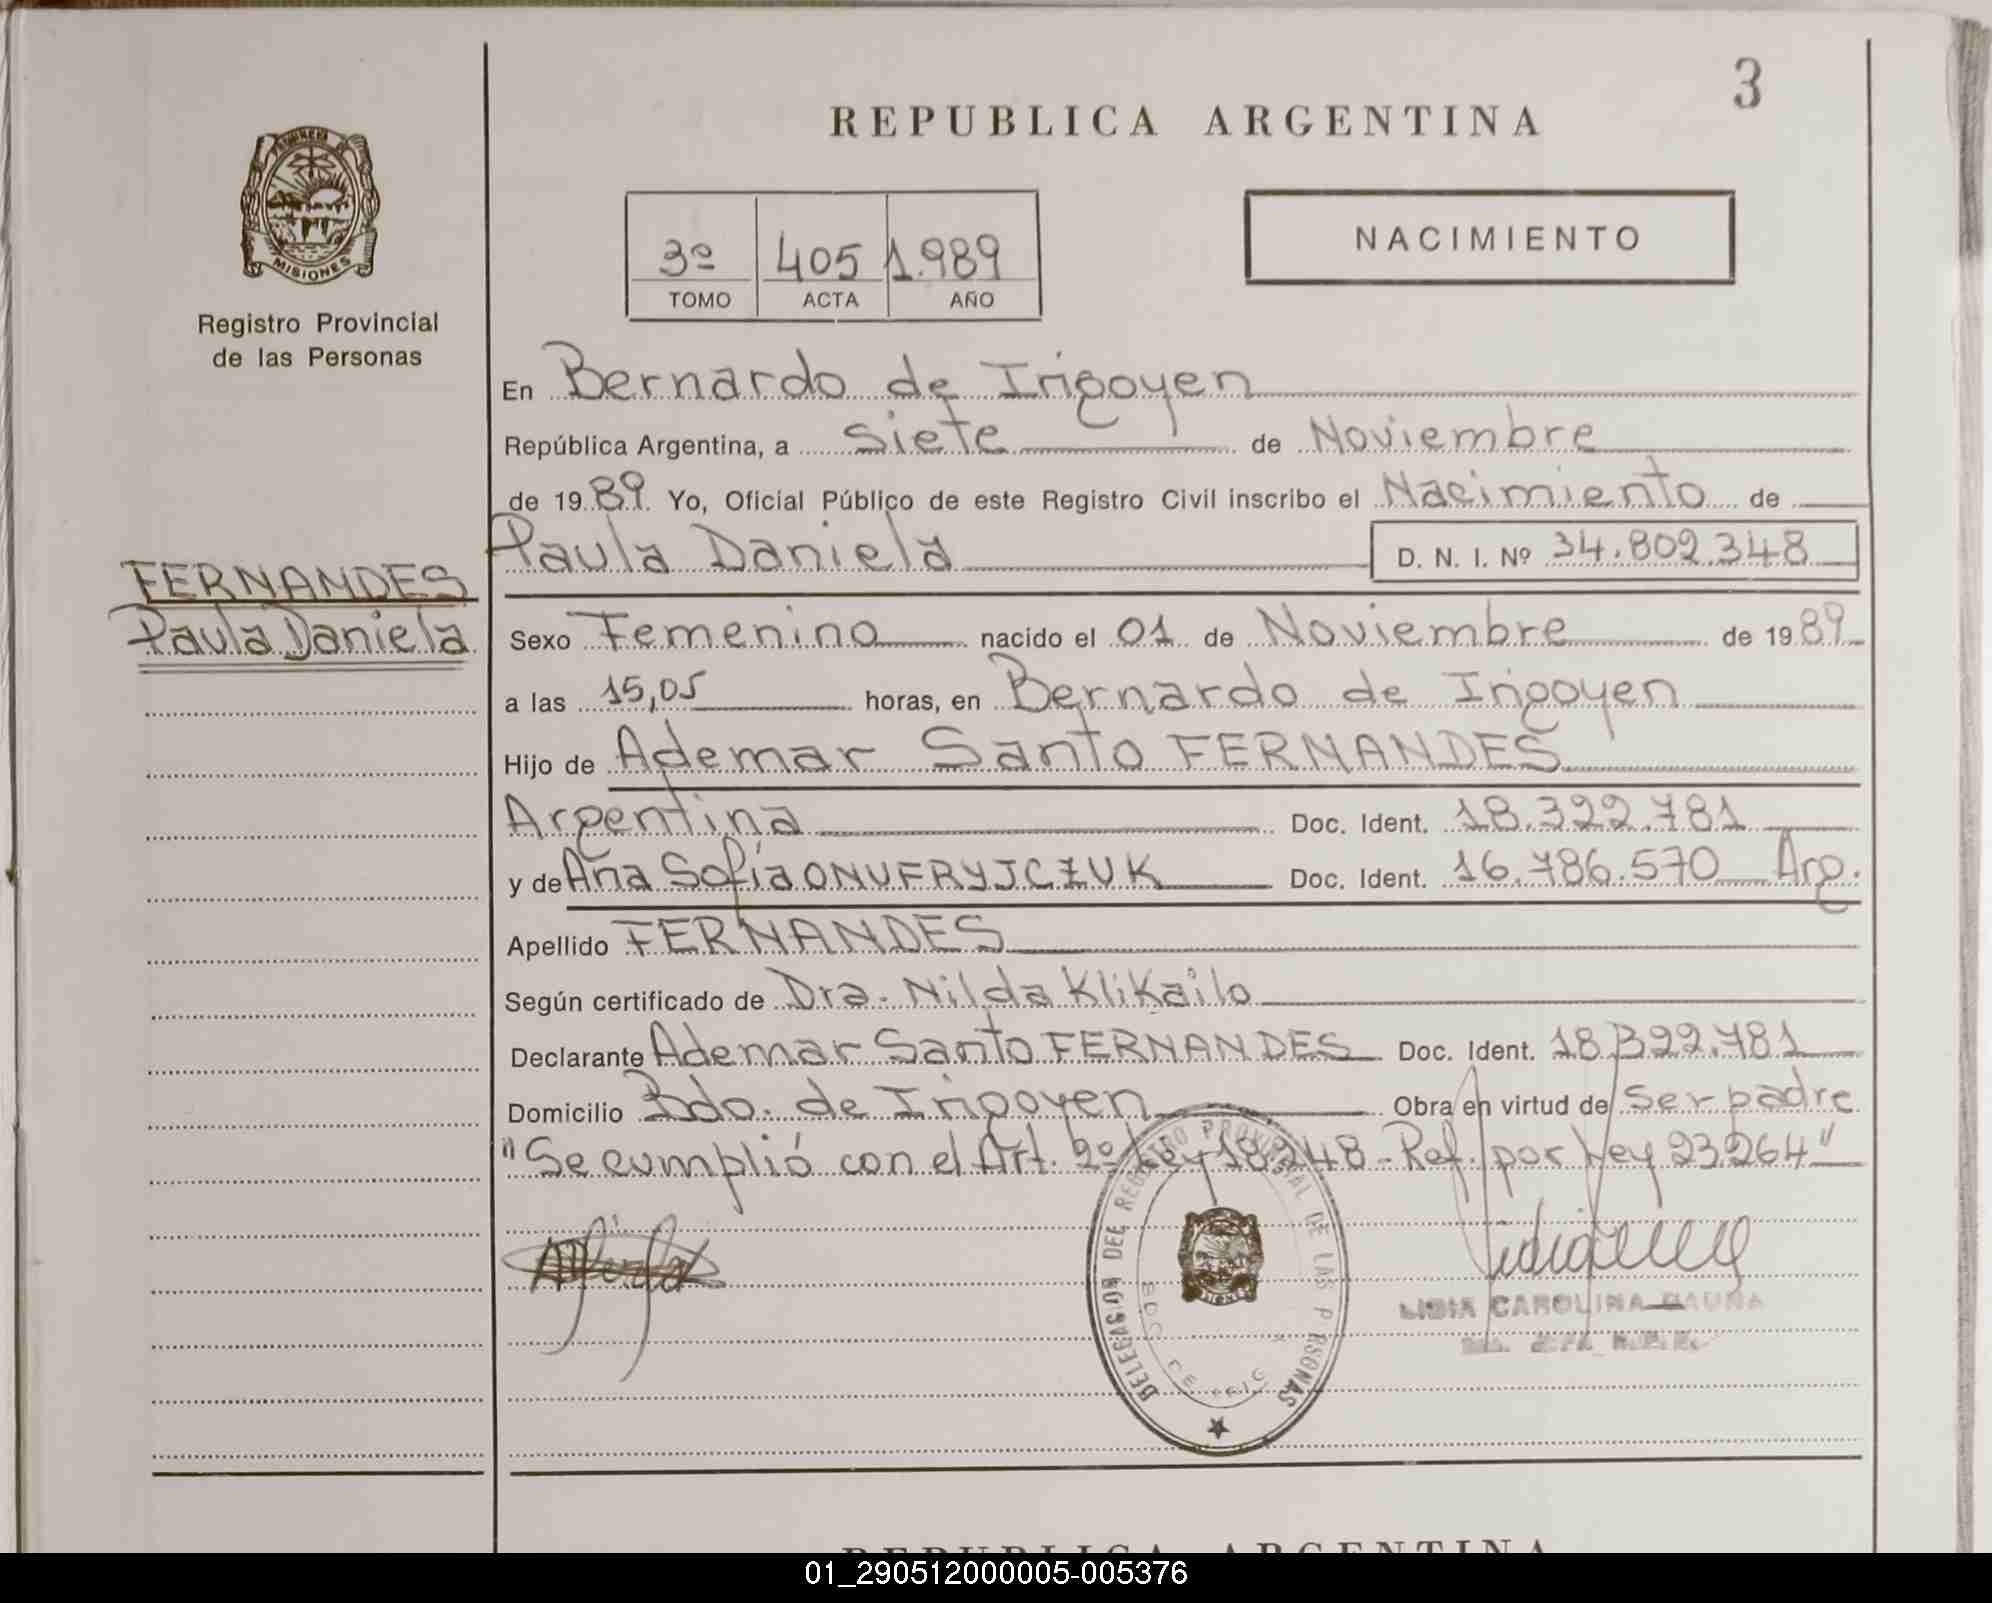 3
REPUBLICA ARGENTINA
MISIONES
Registro Provincial
de las Personas
3º 405 1.989
TOMO ACTA AÑO
NACIMIENTO
En Bernardo de Irigoyen
República Argentina, a siete de Noviembre
de 19 89. Yo, Oficial Público de este Registro Civil inscribo el Nacimiento de
Paula Daniela D. N. I. Nº 34.802.348
FERNANDES
Paula Daniela
Sexo Femenino nacido el 01 de Noviembre de 19 89
a las 15,05 horas, en Bernardo de Irigoyen
Hijo de Ademar Santo FERNANDES
Argentina Doc. Ident. 18.322.781
y de Ana Sofía ONUFRYJCZUK Doc. Ident. 16.786.570 Arg.
Apellido FERNANDES
Según certificado de Dra. Nilda Klikailo
Declarante Ademar Santo FERNANDES Doc. Ident. 18.322.781
Domicilio Bdo. de Irigoyen Obra en virtud de ser padre
"Se cumplió con el Art. 2º Ley 18.248 - Ref. por Ley 23264"
DEL REGISTRO PROVINCIAL DE LAS PERSONAS
LIDIA CAROLINA
REPUBLICA ARGENTINA
01_290512000005-005376